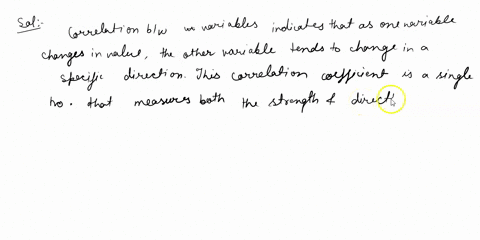 Sol:- Correlation b/w two variables indicates that as one variable
changes in value, the other variable tends to change in a
specific direction. This correlation coefficient is a single
no. that measures both the strength & direct